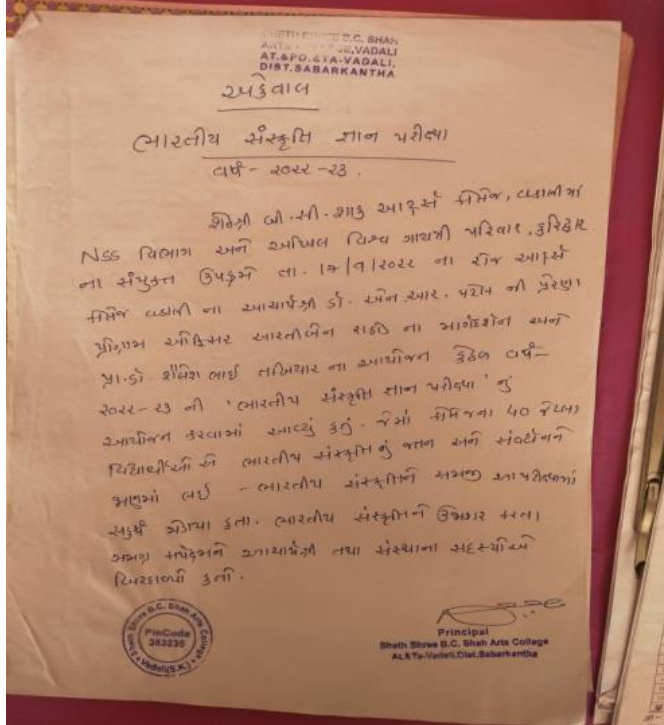 SHETH SHREE B.C. SHAH
ARTS COLLEGE, VADALI
AT.&PO.&TA-VADALI,
DIST.SABARKANTHA
અહેવાલ
ભારતીય સંસ્કૃતિ જ્ઞાન પરીક્ષા
વર્ષ - ૨૦૨૨-૨૩.
શેઠશ્રી બી.સી.શાહ આર્ટ્સ કૉલેજ, વડાલીમાં
NSS વિભાગ અને અખિલ વિશ્વ ગાયત્રી પરિવાર, હરિદ્વાર
ના સંયુક્ત ઉપક્રમે તા. ૧૭/૧/૨૦૨૨ ના રોજ આર્ટ્સ
કૉલેજ વડાલી ના આચાર્યશ્રી ડૉ. એન.આર. પટેલ ની પ્રેરણા
પ્રોગ્રામ ઑફિસર આરતીબેન રાઠોડ ના માર્ગદર્શન અને
પ્રા.ડૉ. શૈલેશભાઈ ના આયોજન હેઠળ વર્ષ-
૨૦૨૨-૨૩ ની 'ભારતીય સંસ્કૃતિ જ્ઞાન પરીક્ષા' નું
આયોજન કરવામાં આવ્યું હતું. જેમાં કૉલેજના ૪૦ જેટલા
વિદ્યાર્થીઓ એ ભારતીય સંસ્કૃતિનું જતન અને સંવર્ધનને
લઈ - ભારતીય સંસ્કૃતિને સમજી આ પરીક્ષામાં
સહર્ષ જોડાયા હતા. ભારતીય સંસ્કૃતિને ઉજાગર કરતા
સમગ્ર આચાર્યશ્રી તથા સંસ્થાના સદસ્યોએ
બિરદાવ્યો હતો.
Sheth Shree B.C. Shah Arts College
PinCode
383235
Vadali(S.K.)
Principal
Sheth Shree B.C. Shah Arts College
At.&Ta-Vadali,Dist.Sabarkantha